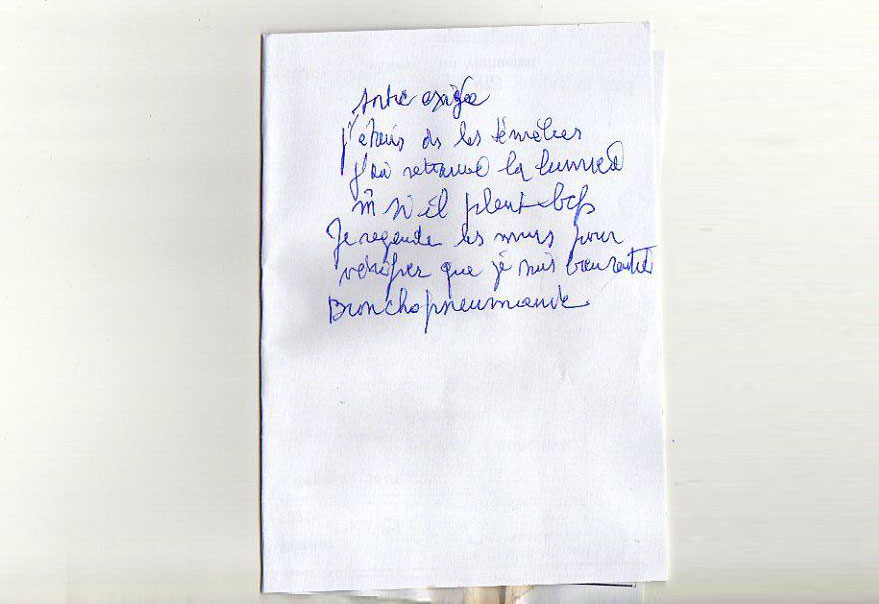 Sortie exigée
J'étais ds les ténèbres
J'ai retrouvé la lumière
m̂ s'il pleut bcp
Je regarde les murs pour
vérifier que je suis bien
Bronchopneumonie